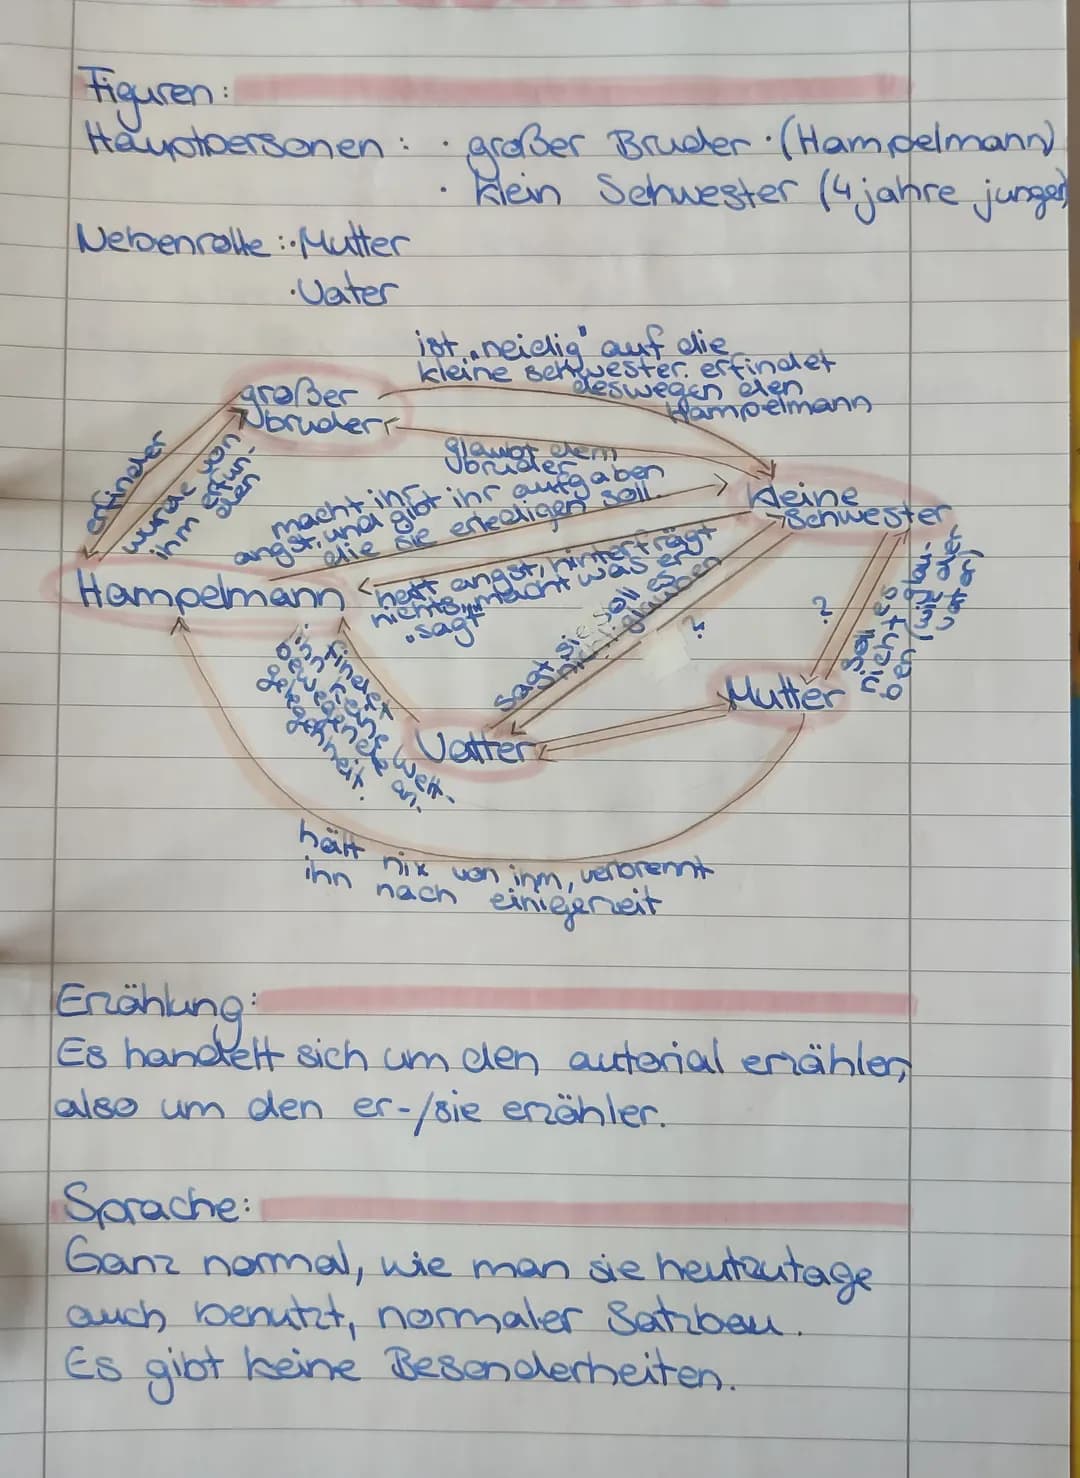 Figuren:
Hauptpersonen : · großer Bruder · (Hampelmann)
· klein Schwester (4 jahre junger)
Nebenrolle : · Mutter
· Vater
ist „neidig" auf die
kleine schwester. erfindet
deswegen den
Hampelmann
großer
bruder
erfindet
wurde von
ihm erfun-
den
glaubt dem
bruder
macht ihr
angst, und gibt ihr aufgaben
die sie erledigen soll.
kleine
schwester
Hampelmann
hatt angst, hinterfrägt
nichts, macht was er
„sagt"
sagt sie soll es
nicht glauben
?
?
soll
nicht es
Mutter
ihn findet
Vatter
hält nix von ihm, verbrennt
ihn nach einigerzeit
Erzählung:
Es handelt sich um den autorial erzähler,
also um den er-/sie erzähler.
Sprache:
Ganz normal, wie man sie heutzutage
auch benutzt, normaler Satzbau.
Es gibt keine Besonderheiten.